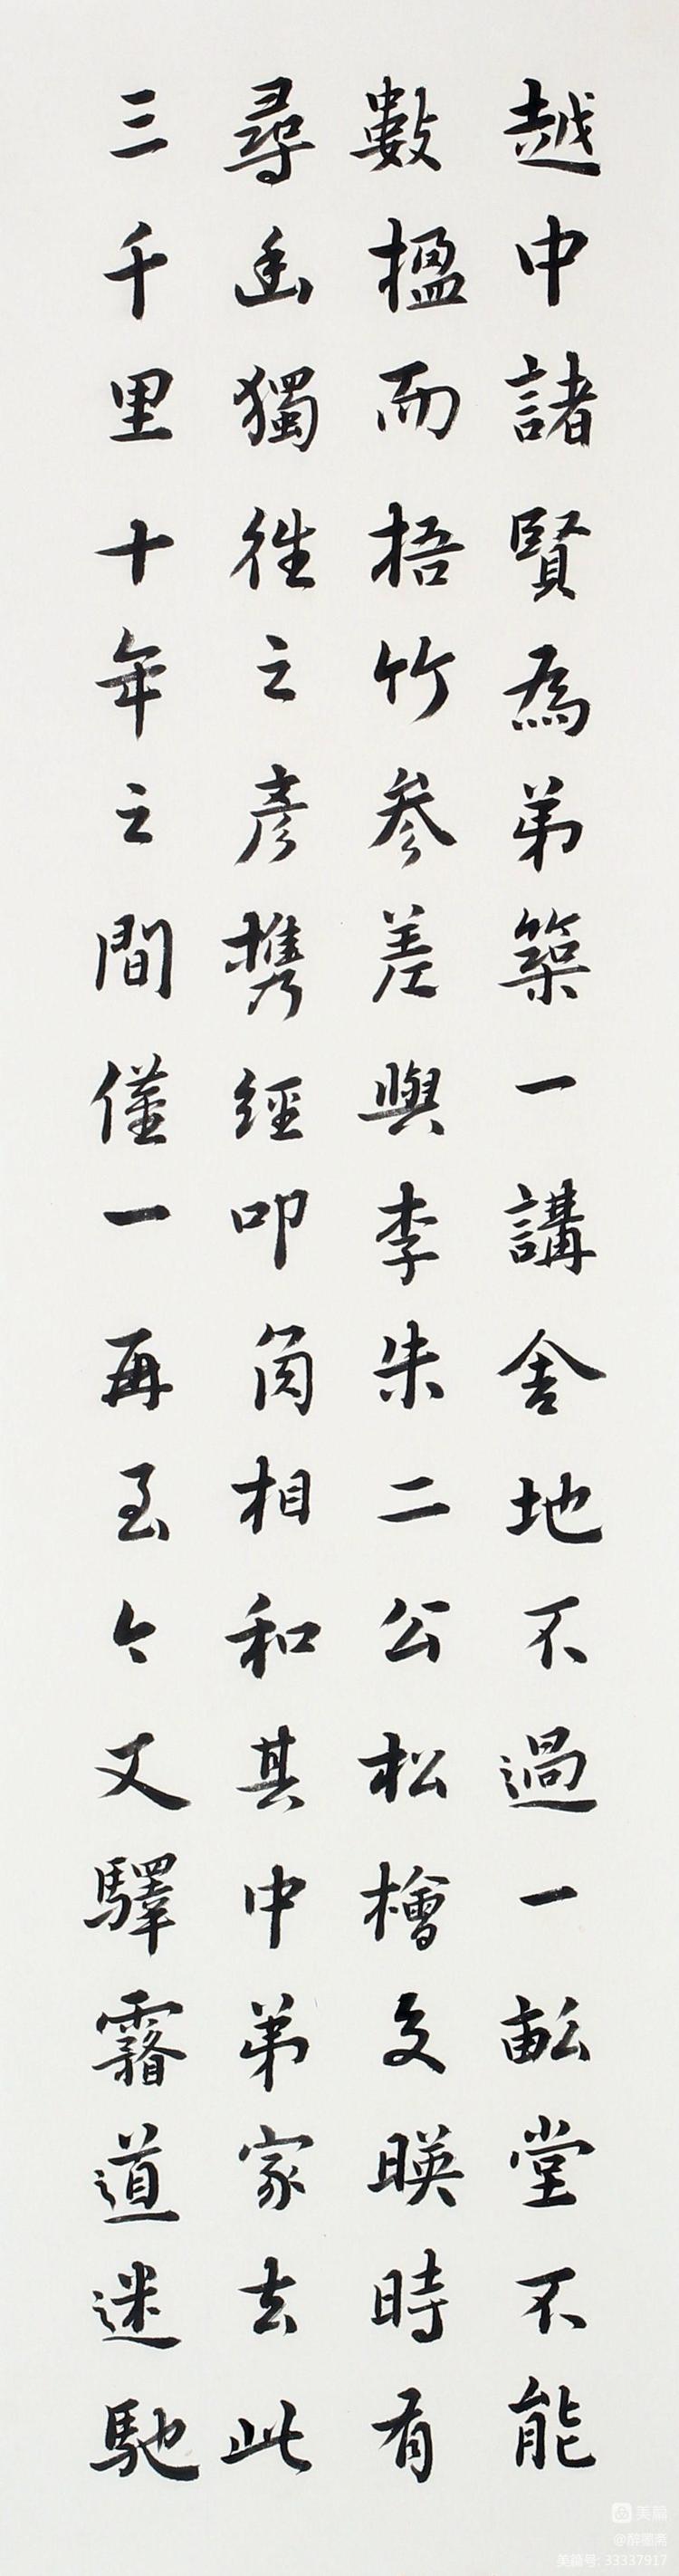 越中諸賢為弟築一講舍地不過一畝堂不能
數楹而梧竹參差與李朱二公松檜交暎時有
尋幽獨徃之彥攜經叩角相和其中弟家去此
三千里十年之間僅一再至今又驛霧道迷馳
美篇
@醉墨斋
美篇号: 33337917